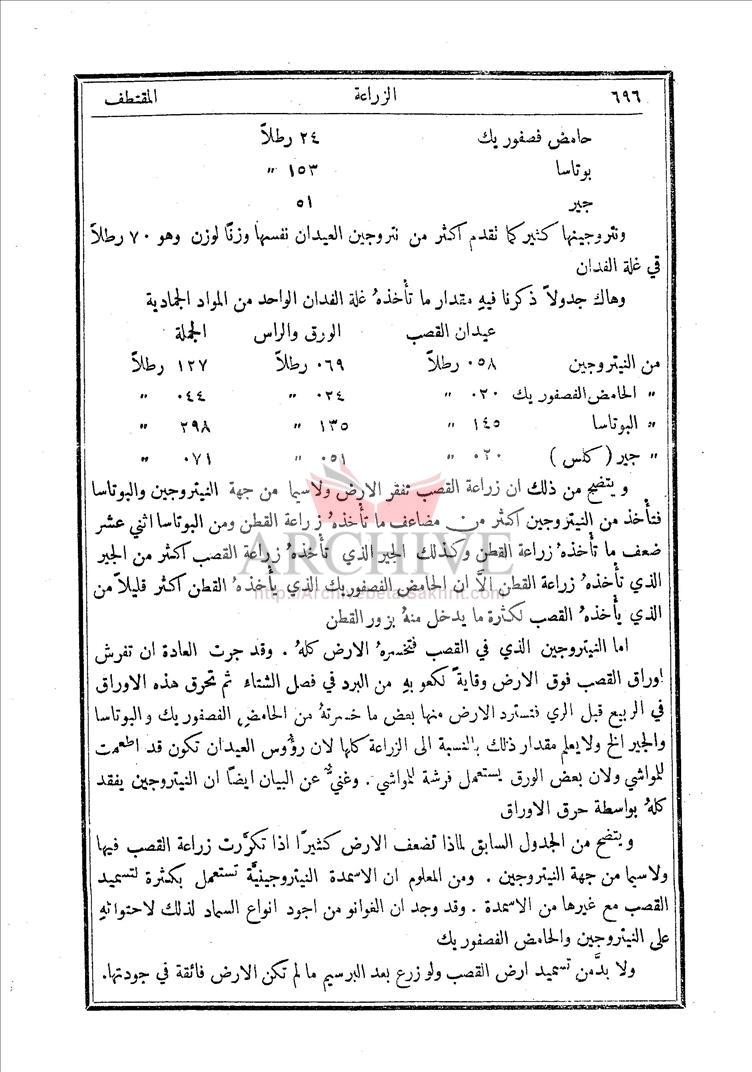 ٦٩٦ الزراعة المقتطف
حامض فصفوريك ٢٤ رطلاً
بوتاسا ١٥٣ "
جير ٥١
ونتروجينها كثير كما تقدم اكثر من نتروجين العيدان نفسها وزنًا لوزن وهو ٧٠ رطلاً
في غلة الفدان
وهاك جدولاً ذكرنا فيهِ مقدار ما تأخذهُ غلة الفدان الواحد من المواد الجمادية
عيدان القصب الورق والراس الجملة
من النيتروجين ٠٥٨ رطلاً ٠٦٩ رطلاً ١٢٧ رطلاً
" الحامض الفصفوريك ٠٢٠ " ٠٢٤ " ٠٤٤ "
" البوتاسا ١٤٥ " ١٣٥ " ٢٩٨ "
" جير (كلس) ٠٢٠ " ٠٥١ " ٠٧١ "
ويتضح من ذلك ان زراعة القصب تفقر الارض ولاسيما من جهة النيتروجين والبوتاسا
فتأخذ من النيتروجين اكثر من مضاعف ما تأخذهُ زراعة القطن ومن البوتاسا اثني عشر
ضعف ما تأخذهُ زراعة القطن وكذلك الجير الذي تأخذهُ زراعة القصب اكثر من الجير
الذي تأخذهُ زراعة القطن الاَّ ان الحامض الفصفوريك الذي يأخذهُ القطن اكثر قليلاً من
الذي يأخذهُ القصب لكثارة ما يدخل منهُ بزور القطن
اما النيتروجين الذي في القصب فتخسرهُ الارض كلهُ . وقد جرت العادة ان تفرش
اوراق القصب فوق الارض وقايةً لكعوبهِ من البرد في فصل الشتاء ثم تحرق هذه الاوراق
في الربيع قبل الري فتسترد الارض منها بعض ما خسرتهُ من الحامض الفصفوريك والبوتاسا
والجير الخ ولايعلم مقدار ذلك بالنسبة الى الزراعة كلها لان رؤوس العيدان تكون قد اطعمت
للمواشي ولان بعض الورق يستعمل فرشة للمواشي . وغنيٌّ عن البيان ايضًا ان النيتروجين يفقد
كلهُ بواسطة حرق الاوراق
ويتضح من الجدول السابق لماذا تضعف الارض كثيرًا اذا تكرَّرت زراعة القصب فيها
ولاسيما من جهة النيتروجين . ومن المعلوم ان الاسمدة النيتروجينيَّة تستعمل بكثرة لتسميد
القصب مع غيرها من الاسمدة . وقد وجد ان الغوانو من اجود انواع السماد لذلك لاحتوائهِ
على النيتروجين والحامض الفصفوريك
ولا بدَّ من تسميد ارض القصب ولو زرع بعد البرسيم ما لم تكن الارض فائقة في جودتها.
ARCHIVE
http://Archivebeta.Sakhrit.com